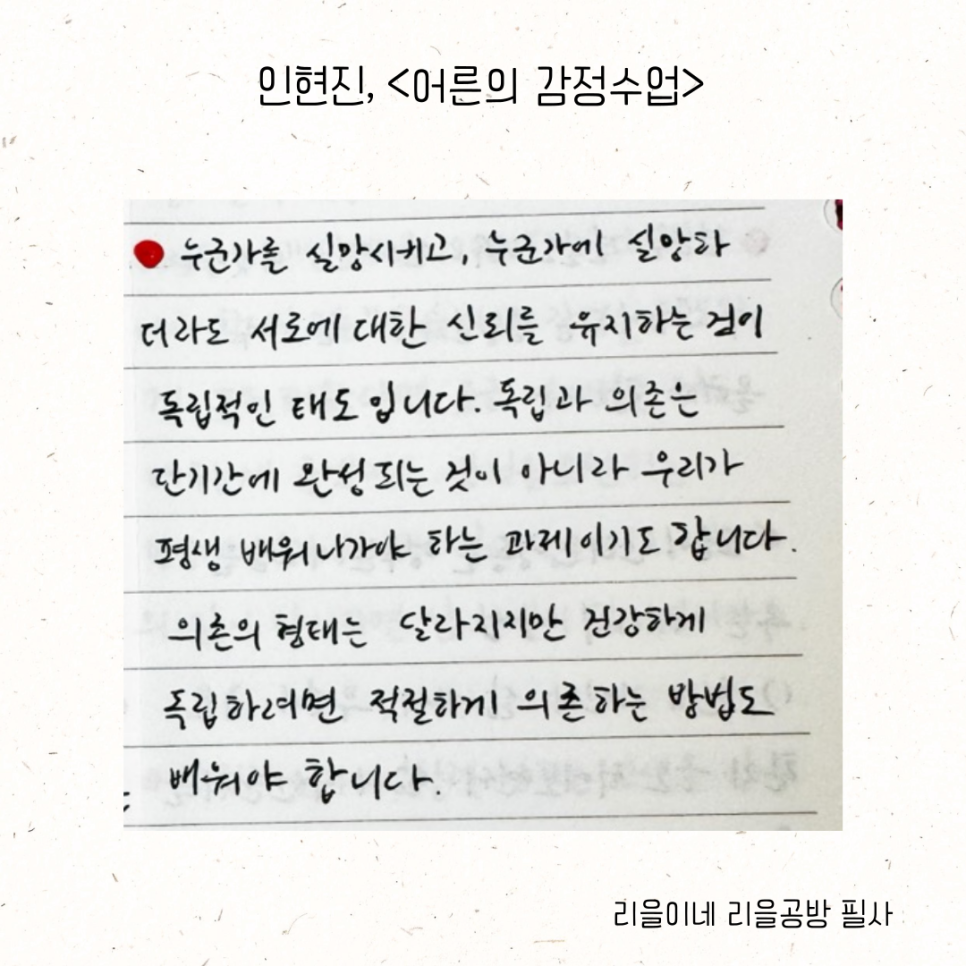 인현진, <어른의 감정수업>
누군가를 실망시키고, 누군가에 실망하
더라도 서로에 대한 신뢰를 유지하는 것이
독립적인 태도입니다. 독립과 의존은
단기간에 완성되는 것이 아니라 우리가
평생 배워나가야 하는 과제이기도 합니다.
의존의 형태는 달라지지만 건강하게
독립하려면 적절하게 의존하는 방법도
배워야 합니다.
리을이네 리을공방 필사